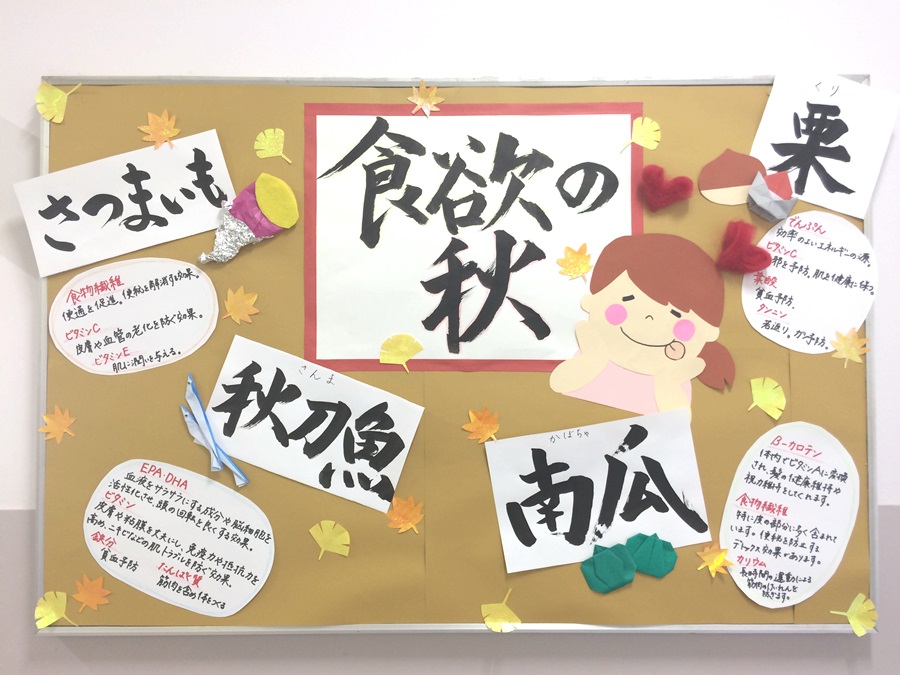 食欲の
秋
さつまいも
食物繊維
便通を促進。便秘を解消する効果。
ビタミンC
皮膚や血管の老化を防ぐ効果。
ビタミンE
肌に潤いを与える。
くり
栗
でんぷん
効率のよいエネルギーの源。
ビタミンC
風邪を予防。肌を健康に保つ。
葉酸
貧血予防。
タンニン
若返り。ガン予防。
さんま
秋刀魚
EPA・DHA
血液をサラサラにする成分や脳細胞を
活性化させ、頭の回転を良くする効果。
ビタミン
皮膚や粘膜を丈夫にし、免疫力や抵抗力を
高め、ニキビなどの肌トラブルを防ぐ効果。
鉄分
貧血予防
たんぱく質
筋肉を含め体をつくる
かぼちゃ
南瓜
β-カロテン
体内でビタミンAに変換
され、髪の健康維持や
視力維持をしてくれます。
食物繊維
特に皮の部分に多く含まれて
います。便秘を防止する
デトックス効果があります。
カリウム
長時間の運動による
筋肉のけいれんを
防ぎます。